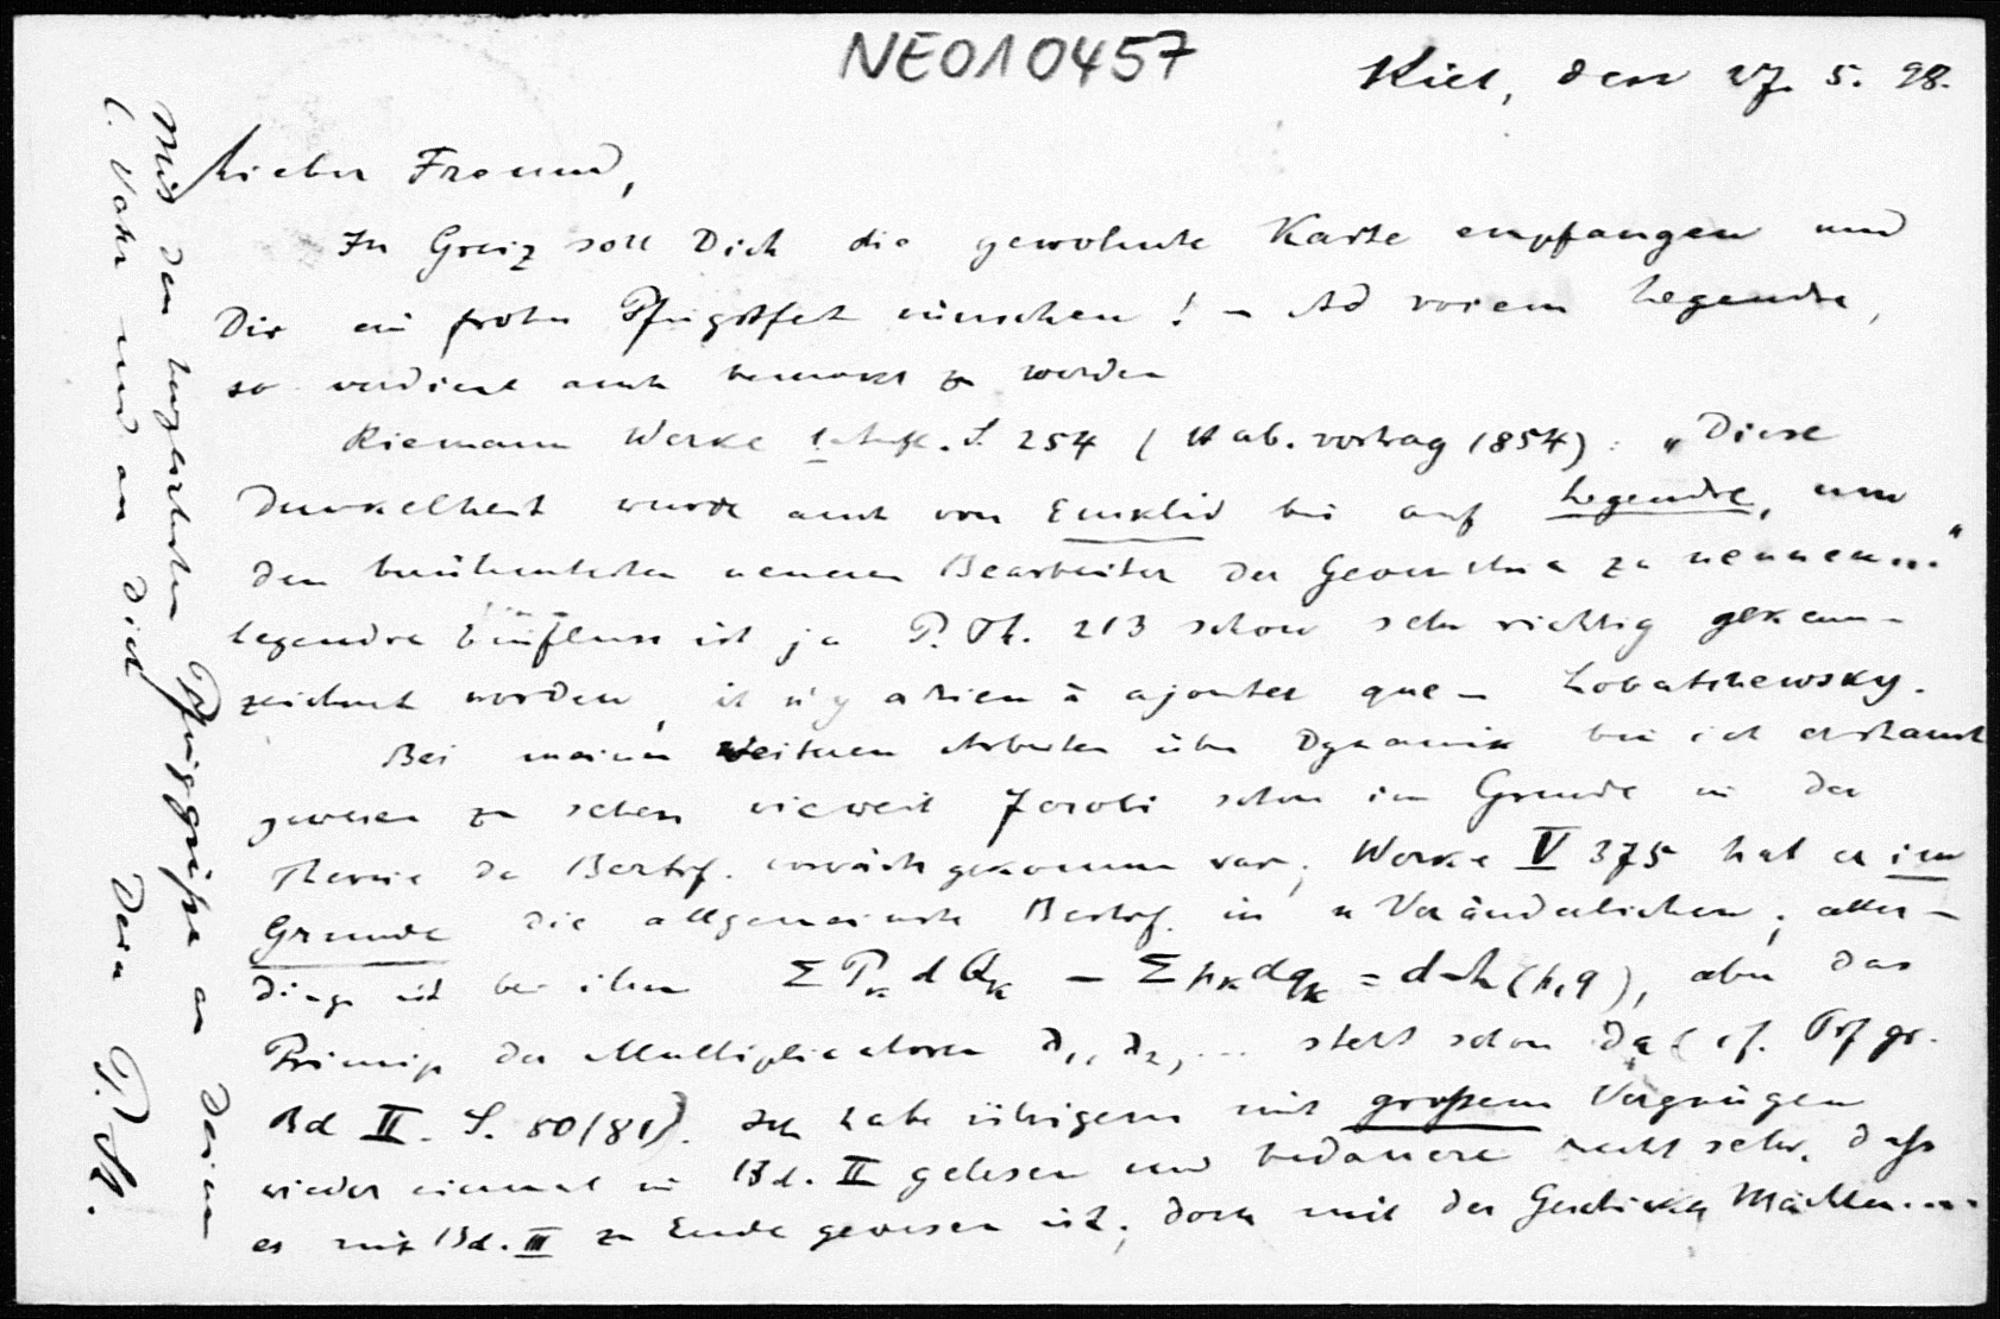 NEO10457
Kiel, den 27. 5. 98.
Lieber Freund,
In Greiz soll Dich die gewohnte Karte empfangen und
Dir ein frohes Pfingstfest wünschen! – Ad vocem Legendre,
so verdient auch bemerkt zu werden
Riemann Werke 1. Aufl. S. 254 (Hab. vortrag 1854): „Diese
Dunkelheit wurde auch von Euklid bis auf Legendre, um
den berühmtesten neueren Bearbeiter der Geometrie zu nennen..."
Legendre Einfluss ist ja P. Th. 213 schon sehr richtig gekenn-
zeichnet worden, il n'y a rien à ajouter que – Lobatschewsky.
Bei meinen weiteren Arbeiten über Dynamik bin ich erstaunt
gewesen zu sehen wieweit Jacobi schon im Grunde in der
Theorie der Bertrf. vorwärts gekommen war; Werke V 375 hat er im
Grunde die allgemeinste Bertrf. in n Veränderlichen; aller-
dings ist bei ihm Σ P_κ d Q_κ – Σ p_κ dq_κ = dh(p,q), aber das
Princip der Multiplicatoren λ₁, λ₂, ... steht schon da (cf. Trfgr.
Bd II. S. 80/81). Ich habe übrigens mit großem Vergnügen
wieder einmal in Bd. II gelesen und bedauere recht sehr, daß
es mit Bd. III zu Ende gewesen ist; doch mit des Geschickes Mächten....
Mit den herzlichsten Pfingstgrüßen an Deinen
l. Vater und an Dich Dein P. St.